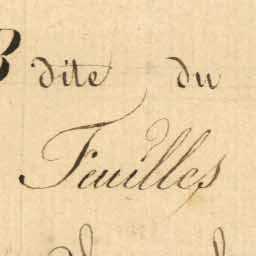 dite du
Feuilles